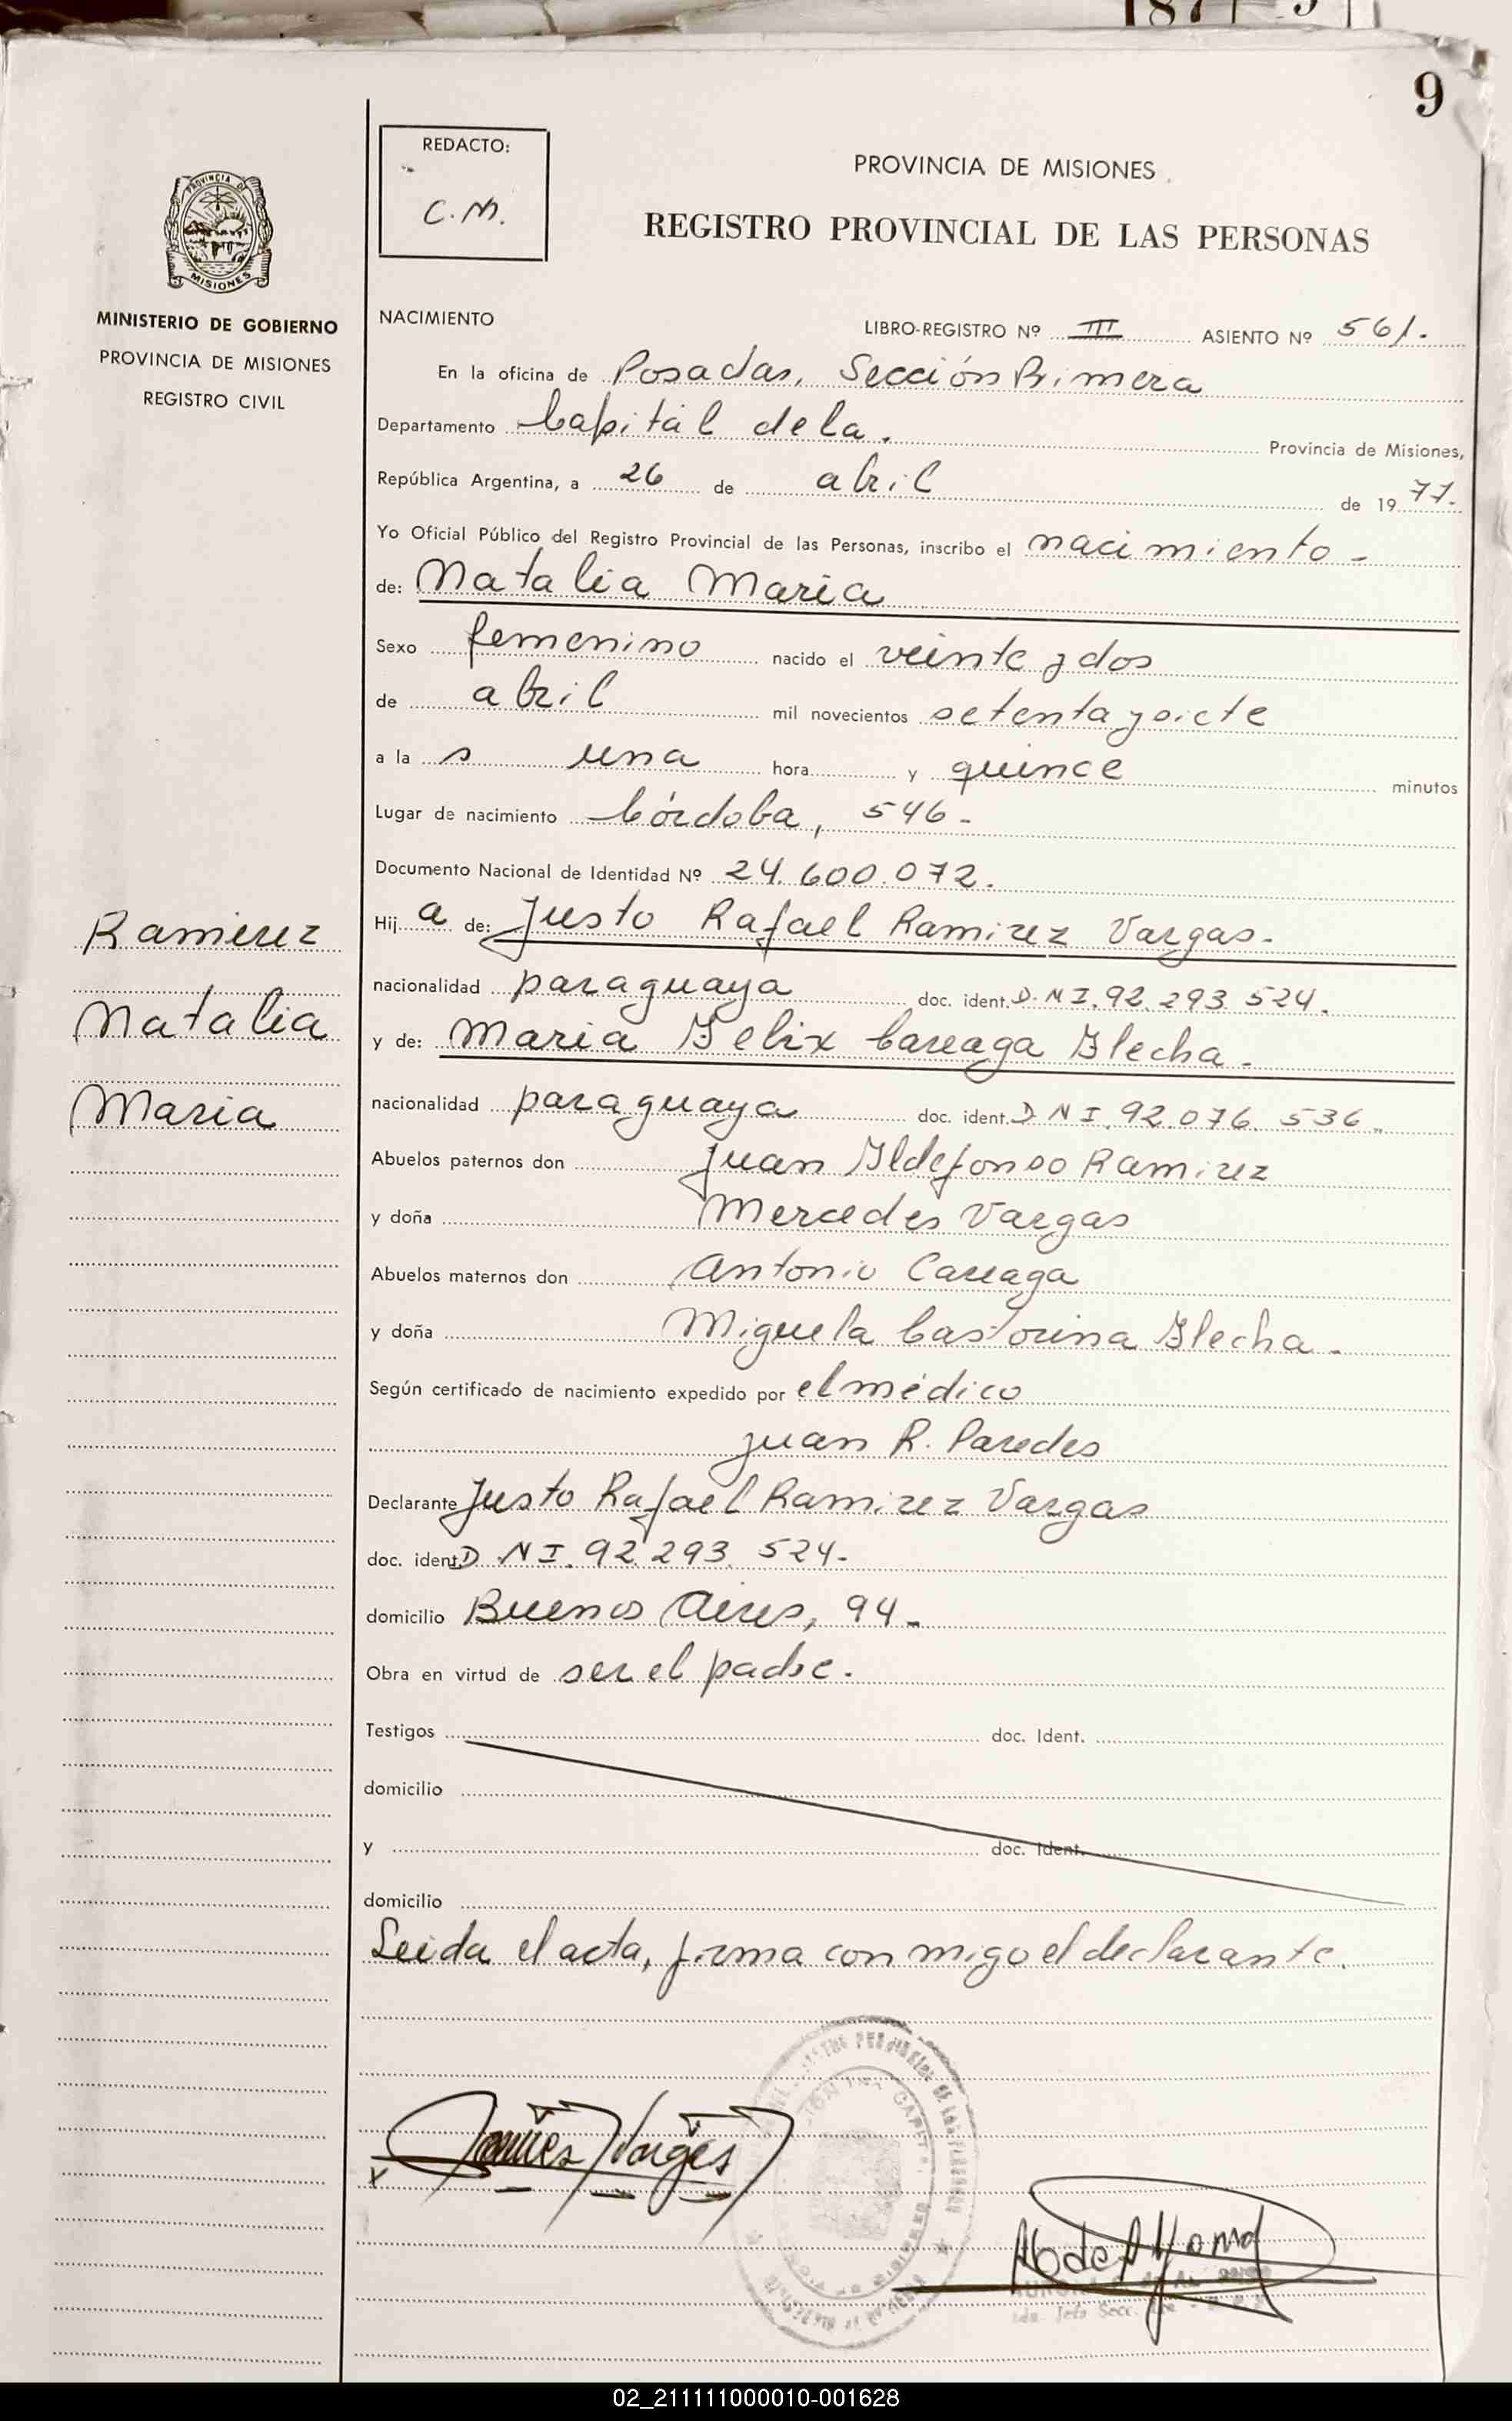 9
REDACTO:
C.M.
PROVINCIA DE MISIONES
REGISTRO PROVINCIAL DE LAS PERSONAS
PROVINCIA DE
MISIONES
MINISTERIO DE GOBIERNO
PROVINCIA DE MISIONES
REGISTRO CIVIL
NACIMIENTO
LIBRO-REGISTRO Nº III ASIENTO Nº 561.
En la oficina de Posadas, Sección Primera
Departamento Capitál de la. Provincia de Misiones,
República Argentina, a 26 de abril de 1977.
Yo Oficial Público del Registro Provincial de las Personas, inscribo el nacimiento -
de: Natalia Maria
Sexo femenino nacido el veinte y dos
de abril mil novecientos setenta y siete
a la s una hora y quince minutos
Lugar de nacimiento Córdoba, 546-
Documento Nacional de Identidad Nº 24.600.072.
Ramirez
Natalia
Maria
Hij a de: Justo Rafael Ramirez Vargas.
nacionalidad paraguaya doc. ident. D.N.I. 92.293.524.
y de: Maria Felix Careaga Flecha.
nacionalidad paraguaya doc. ident. D N I. 92.076.536.
Abuelos paternos don Juan Ildefonso Ramirez
y doña Mercedes Vargas
Abuelos maternos don Antonio Careaga
y doña Miguela Castorina Flecha.
Según certificado de nacimiento expedido por el médico
Juan R. Paredes
Declarante Justo Rafael Ramirez Vargas
doc. ident. D N I. 92.293.524.
domicilio Buenos Aires, 94-
Obra en virtud de ser el padre.
Testigos doc. Ident.
domicilio
y doc. Ident.
domicilio
Leida el acta, firma conmigo el declarante.
02_211111000010-001628